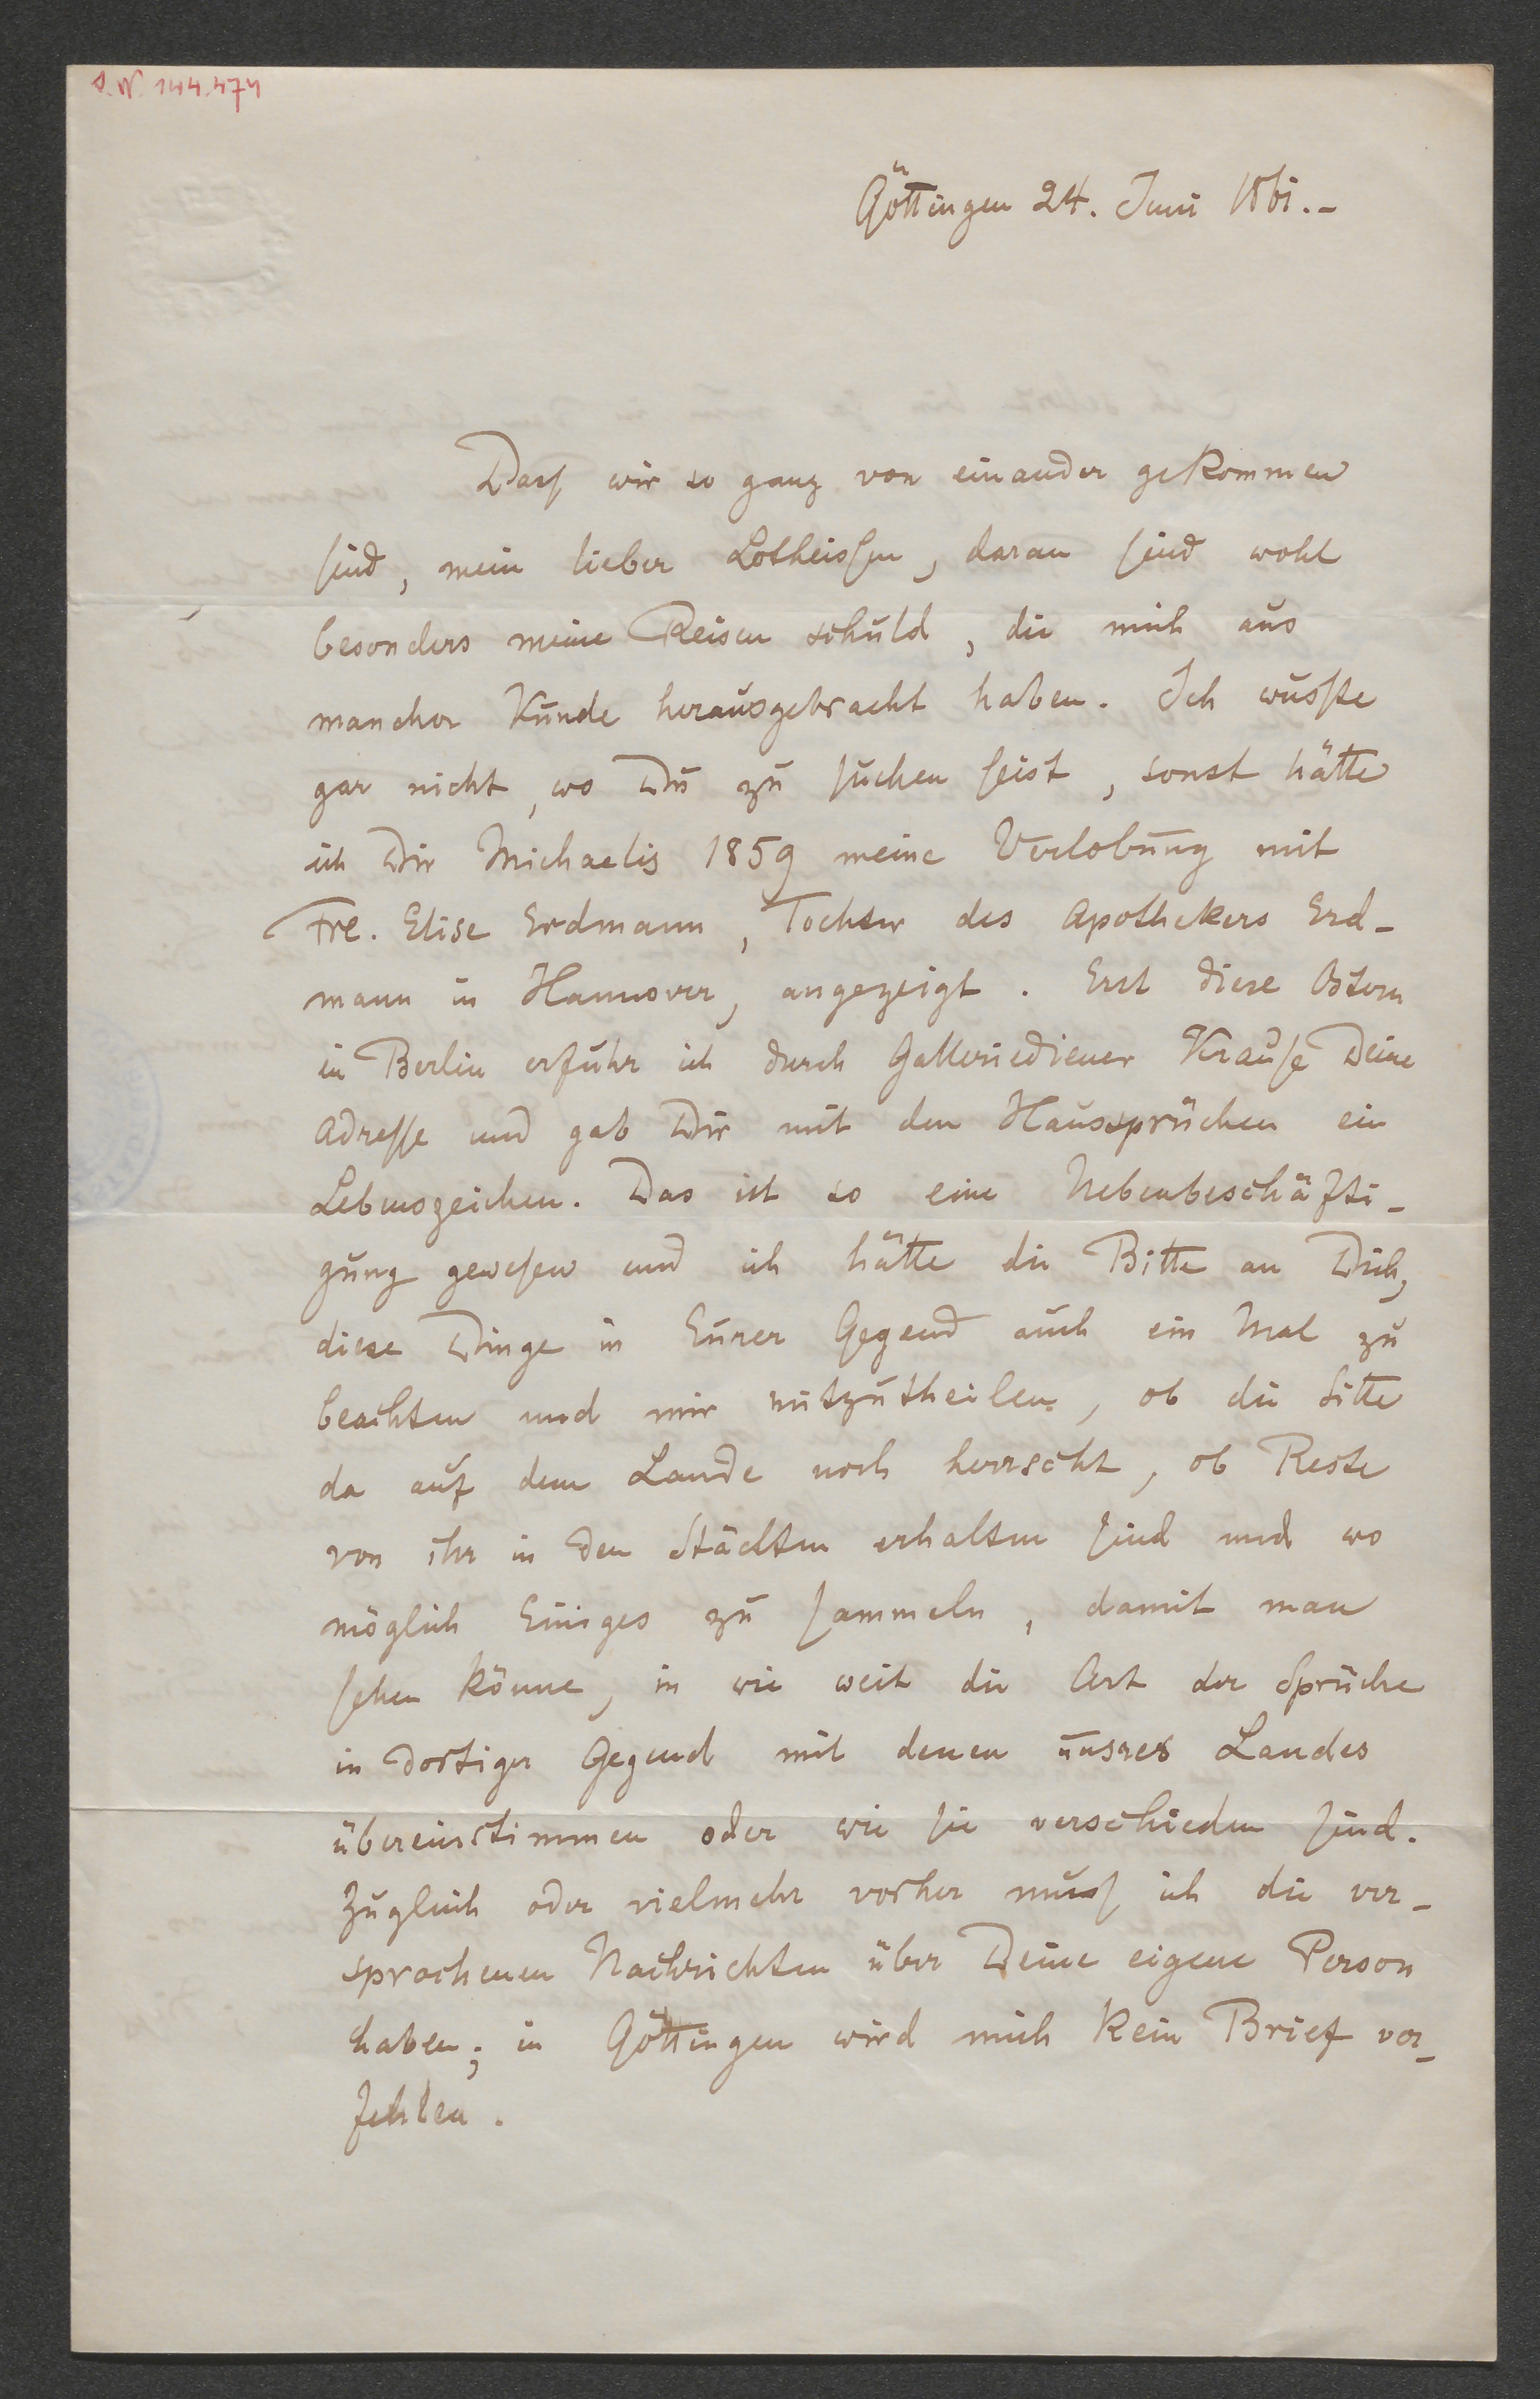 J.N. 144.474
Göttingen 24. Juni 1861.-
Dass wir so ganz von einander gekommen
sind, mein lieber Lotheissen, daran sind wohl
besonders meine Reisen schuld, die mich aus
mancher Kunde herausgebracht haben. Ich wusste
gar nicht, wo Du zu suchen seist, sonst hätte
ich Dir Michaelis 1859 meine Verlobung mit
Frl. Elise Erdmann, Tochter des Apothekers Erd-
mann in Hannover, angezeigt. Erst diese Ostern
in Berlin erfuhr ich durch Galleriediener Krause Deine
Adresse und gab Dir mit den Haussprüchen ein
Lebenszeichen. Das ist so eine Nebenbeschäfti-
gung gewesen und ich hätte die Bitte an Dich,
diese Dinge in Eurer Gegend auch ein Mal zu
beachten und mir mitzutheilen, ob die Sitte
da auf dem Lande noch herrscht, ob Reste
von ihr in den Städten erhalten sind und wo
möglich Einiges zu sammeln, damit man
sehen könne, in wie weit die Art der Sprüche
in dortiger Gegend mit denen unsres Landes
übereinstimmen oder wie sie verschieden sind.
Zugleich oder vielmehr vorher muss ich die ver-
sprochenen Nachrichten über Deine eigene Person
haben; in Göttingen wird mich kein Brief ver-
fehlen.